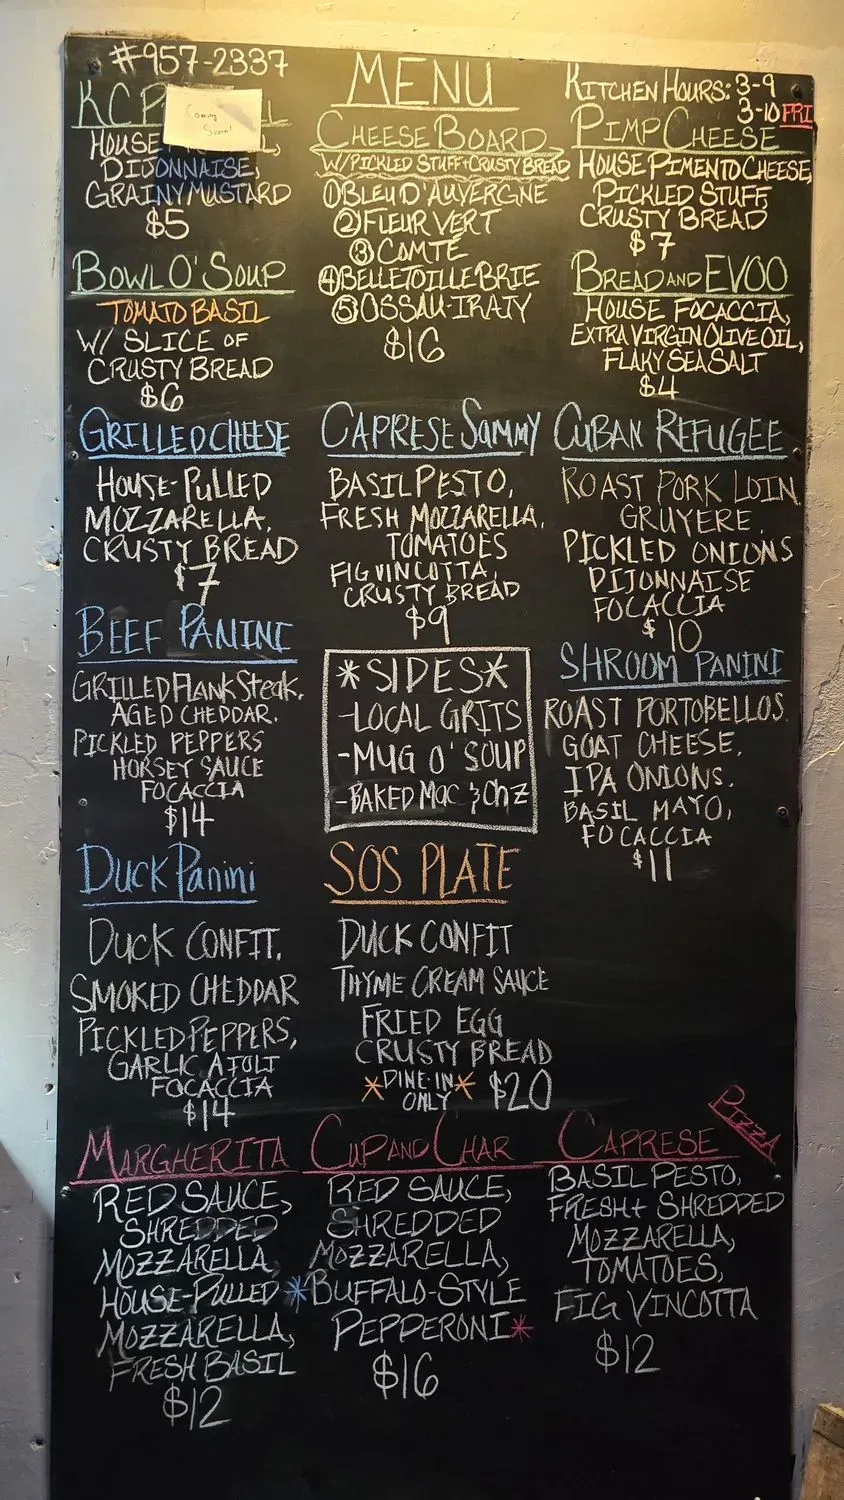 #957-2337
MENU
KITCHEN HOURS: 3-9
3-10 FRI
KC P
Coming
Soon!
HOUSE
DIJONNAISE,
GRAINY MUSTARD
$5
CHEESE BOARD
W/PICKLED STUFF+CRUSTY BREAD
①BLEU D'AUVERGNE
②FLEUR VERT
③COMTÉ
④BELLETOILLE BRIE
⑤OSSAU-IRATY
$16
PIMP CHEESE
HOUSE PIMENTO CHEESE,
PICKLED STUFF,
CRUSTY BREAD
$7
BOWL O' SOUP
TOMATO BASIL
W/ SLICE OF
CRUSTY BREAD
$6
BREAD AND EVOO
HOUSE FOCACCIA,
EXTRA VIRGIN OLIVE OIL,
FLAKY SEA SALT
$4
GRILLED CHEESE
HOUSE-PULLED
MOZZARELLA,
CRUSTY BREAD
$7
CAPRESE SAMMY
BASIL PESTO,
FRESH MOZZARELLA,
TOMATOES
FIG VINCOTTA,
CRUSTY BREAD
$9
CUBAN REFUGEE
ROAST PORK LOIN,
GRUYERE,
PICKLED ONIONS
DIJONNAISE
FOCACCIA
$10
BEEF PANINI
GRILLED FLANK STEAK,
AGED CHEDDAR,
PICKLED PEPPERS
HORSEY SAUCE
FOCACCIA
$14
*SIDES*
-LOCAL GRITS
-MUG O' SOUP
-BAKED MAC & CHZ
SHROOM PANINI
ROAST PORTOBELLOS,
GOAT CHEESE,
IPA ONIONS,
BASIL MAYO,
FOCACCIA
$11
DUCK PANINI
DUCK CONFIT,
SMOKED CHEDDAR
PICKLED PEPPERS,
GARLIC AIOLI
FOCACCIA
$14
SOS PLATE
DUCK CONFIT
THYME CREAM SAUCE
FRIED EGG
CRUSTY BREAD
*DINE-IN* $20
ONLY
PIZZA
MARGHERITA
RED SAUCE,
SHREDDED
MOZZARELLA,
HOUSE-PULLED
MOZZARELLA,
FRESH BASIL
$12
CUP AND CHAR
RED SAUCE,
SHREDDED
MOZZARELLA,
*BUFFALO-STYLE
PEPPERONI*
$16
CAPRESE
BASIL PESTO,
FRESH + SHREDDED
MOZZARELLA,
TOMATOES,
FIG VINCOTTA
$12